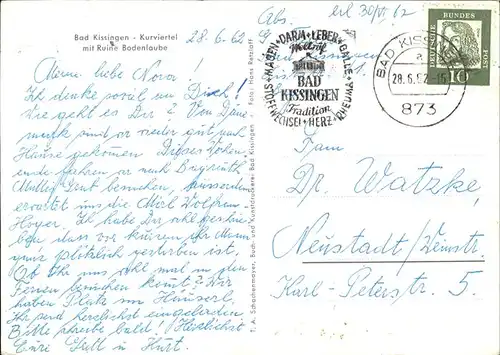 Bad Kissingen - Kurviertel
mit Ruine Bodenlaube
28.6.62
Meine liebe Nora!
Ich denke soviel an Dich!
Wie geht es Dir? Von Däne
mark sind wir wieder gut nach
Hause gekommen Dieses Wochen
ende fahren wir nach Bayreuth
besuchen, ausserdem
erwartet uns die
Ich habe Dir
dass vor kurzem ihr Mann
ganz plötzlich gestorben ist.
Ob Ihr uns mal in den
Ferien besuchen könnt? Wir
haben Platz im Häuserl.
Ihr seid herzlichst eingeladen
Bitte schreibe bald! Herzlichst
Eure in
T. A. Schachenmayer, Buch- und Kunstdruckerei, Bad Kissingen - Foto: Hans Retzlaff
Abs.
erl 30/VI 62
MAGEN · DARM · LEBER · GALLE · RHEUMA · HERZ · STOFFWECHSEL
Weltruf
BAD
KISSINGEN
Tradition
BAD KISSINGEN
a
28.6.62-15
873
DEUTSCHE BUNDESPOST
10
Fam
Dr. Watzke,
Neustadt/Weinstr.
Karl-Peterstr. 5.